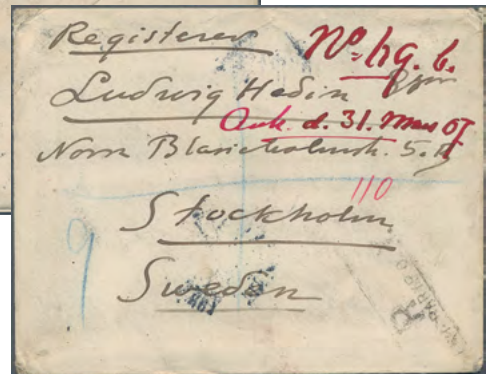 Registerer
No. 69. b.
Ludwig Hedin
Ank. d. 31. Mars 07
Norra Blasieholmsh. 5. B
110
Stockholm
Sweden
R